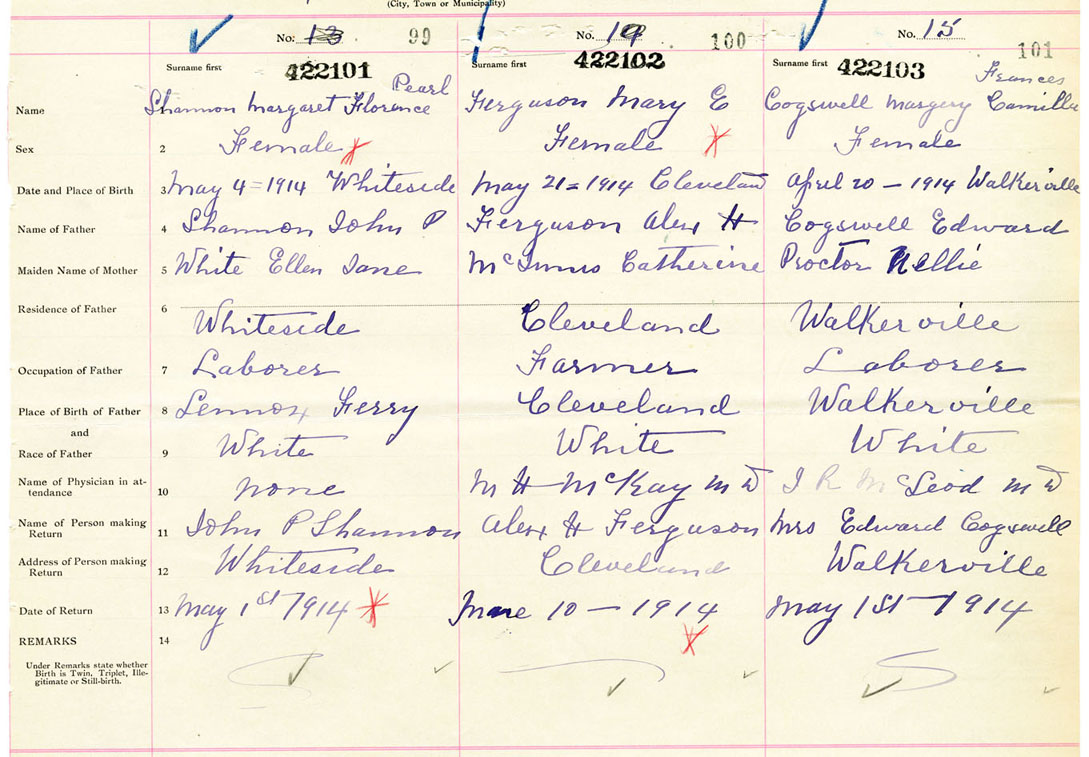 (City, Town or Municipality)
No. 13 99 No. 14 100 No. 15 101
Surname first 422101 Surname first 422102 Surname first 422103
Pearl Frances
Name Shannon Margaret Florence Ferguson Mary E Cogswell Margery Camilla
Sex 2 Female Female Female
Date and Place of Birth 3 May 4=1914 Whiteside May 21=1914 Cleveland April 20-1914 Walkerville
Name of Father 4 Shannon John P Ferguson Alex H Cogswell Edward
Maiden Name of Mother 5 White Ellen Jane McInnis Catherine Proctor Nellie
Residence of Father 6 Whiteside Cleveland Walkerville
Occupation of Father 7 Laborer Farmer Laborer
Place of Birth of Father 8 Lennox Ferry Cleveland Walkerville
and
Race of Father 9 White White White
Name of Physician in at-
tendance 10 none M H McKay M D J R McLeod M D
Name of Person making
Return 11 John P Shannon Alex H Ferguson Mrs Edward Cogswell
Address of Person making
Return 12 Whiteside Cleveland Walkerville
Date of Return 13 May 1st 1914 10-1914 May 1st-1914
REMARKS 14
Under Remarks state whether
Birth is Twin, Triplet, Ille-
gitimate or Still-birth.